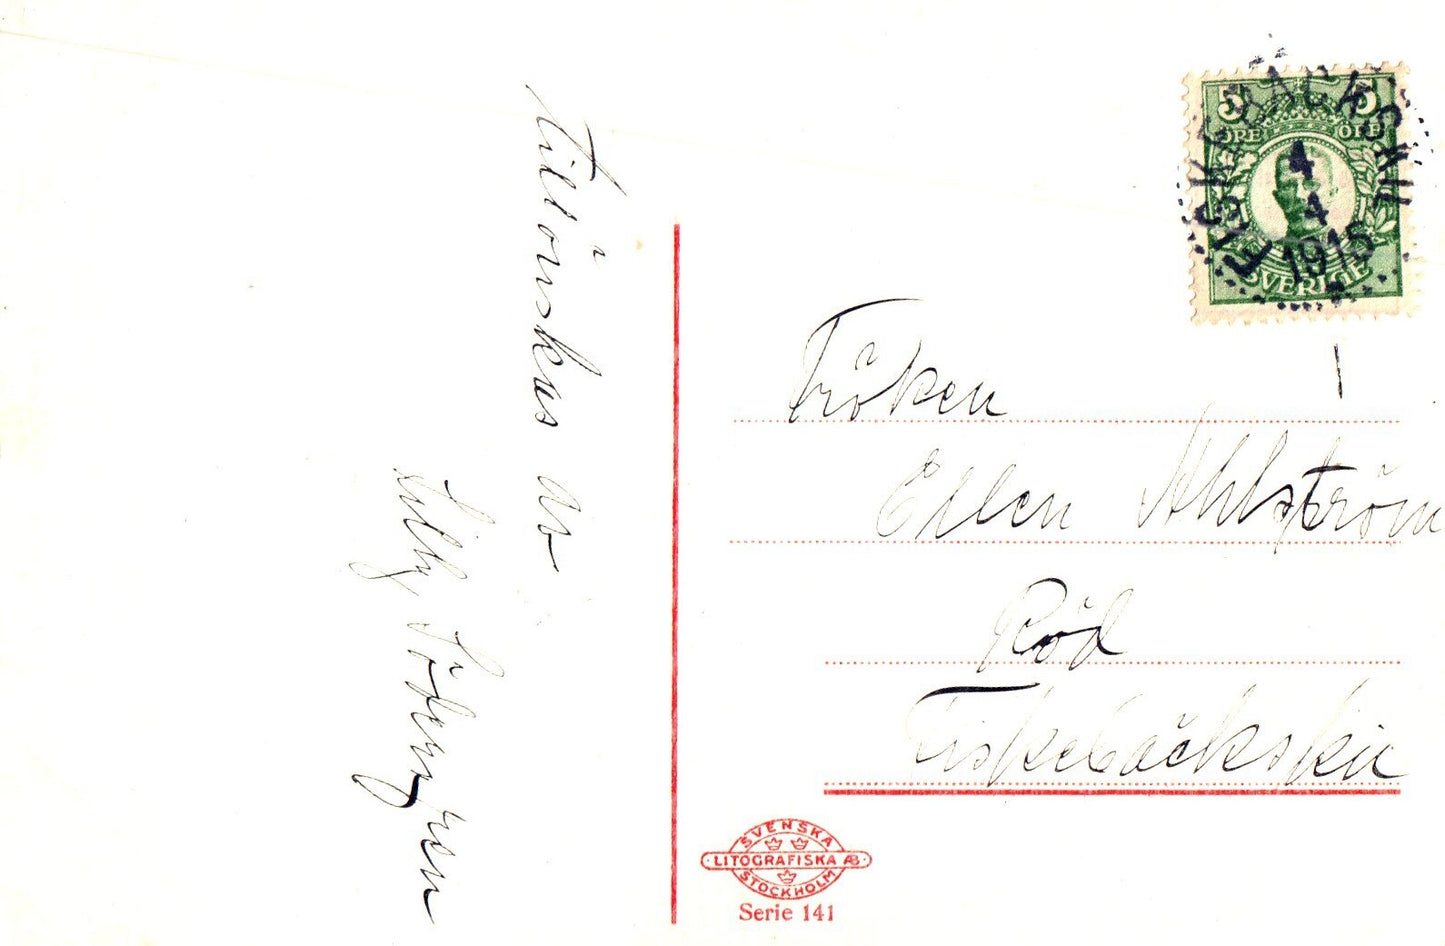 Tillönskas av
Lilly Södergren
5 5
ÖRE ÖRE
SVERIGE
FISKEBÄCKSKIL
4
4
1915
Fröken
Ellen Ahlström
Röd
Fiskebäckskil
SVENSKA
LITOGRAFISKA AB
STOCKHOLM
Serie 141